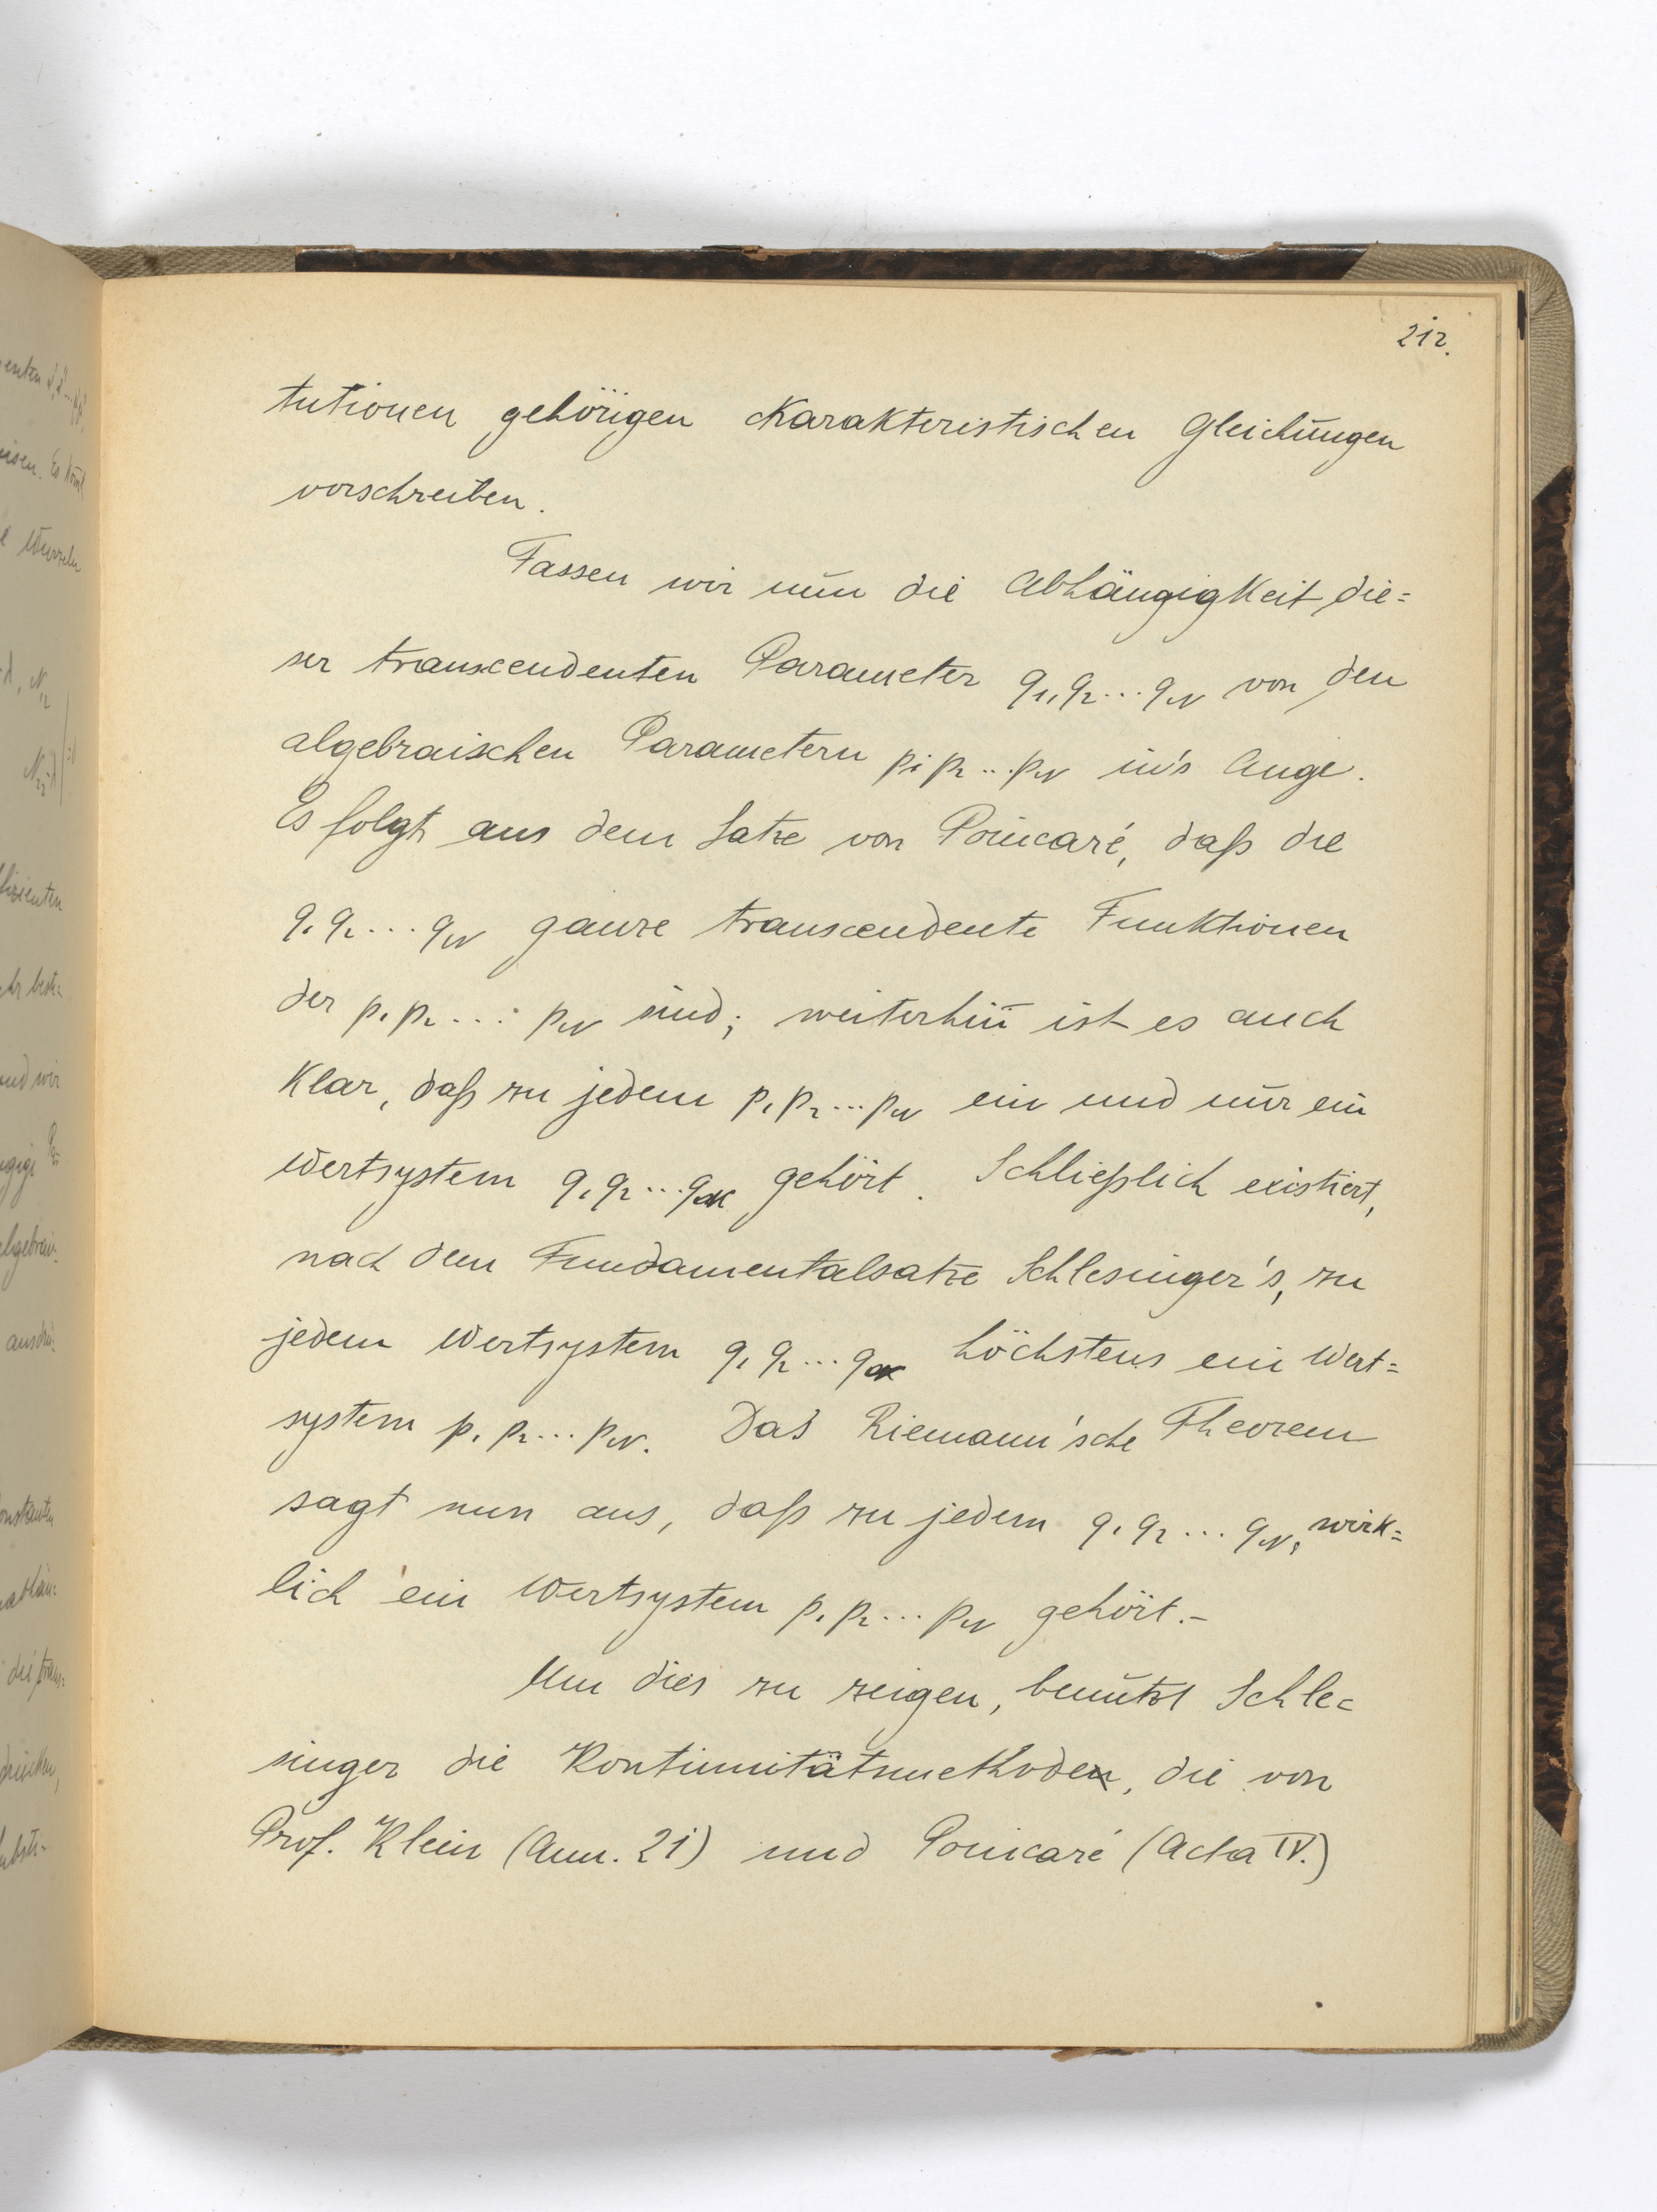 212.
tutionen gehörigen charakteristischen Gleichungen
vorschreiben.
Fassen wir nun die Abhängigkeit die=
ser transcendenten Parameter q1, q2 ... qN von den
algebraischen Parametern p1 p2 ... pN in's Auge.
Es folgt aus dem Satze von Poincaré, daß die
q1 q2 ... qN ganze transcendente Funktionen
der p1 p2 ... pN sind; weiterhin ist es auch
klar, daß zu jedem p1 p2 ... pN ein und nur ein
Wertsystem q1 q2 ... qN gehört. Schließlich existiert,
nach dem Fundamentalsatze Schlesinger's, zu
jedem Wertsystem q1 q2 ... qN höchstens ein Wert=
system p1 p2 ... pN. Das Riemann'sche Theorem
sagt nun aus, daß zu jedem q1 q2 ... qN, wirk=
lich ein Wertsystem p1 p2 ... pN gehört.-
Um dies zu zeigen, benützt Schle=
singer die Kontinuitätsmethode, die von
Prof. Klein (Ann. 21) und Poincaré (Acta IV.)